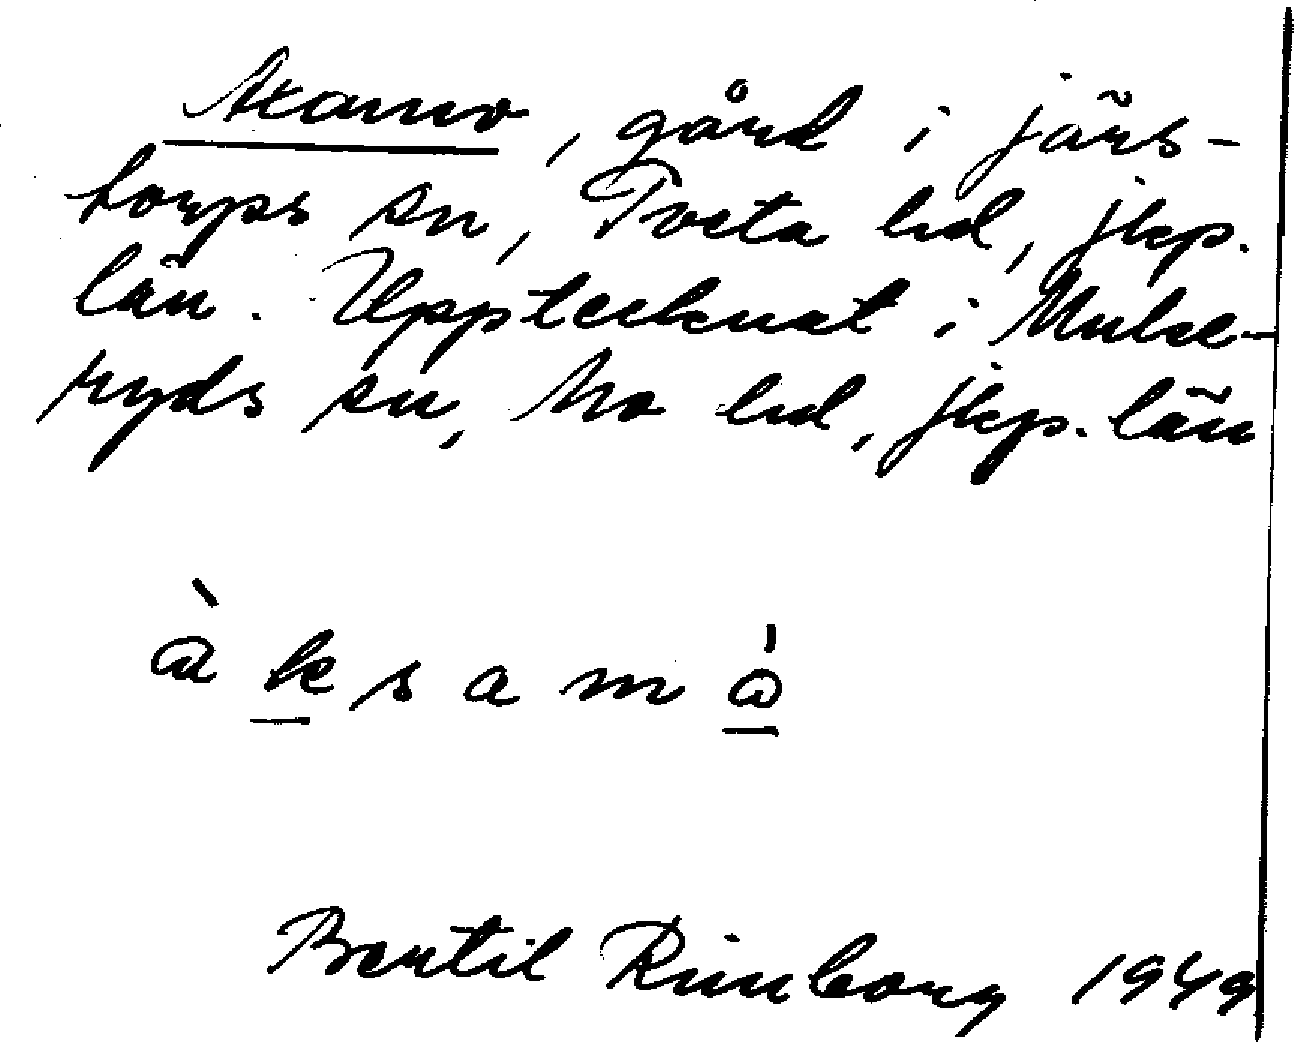 Axamo, gård i Järs-
torps sn, Tveta hd, Jkp.
län. Upptecknat i Mulse-
ryds sn, Mo hd, Jkp. län
à k s a m å
Bertil Rimborg 1949